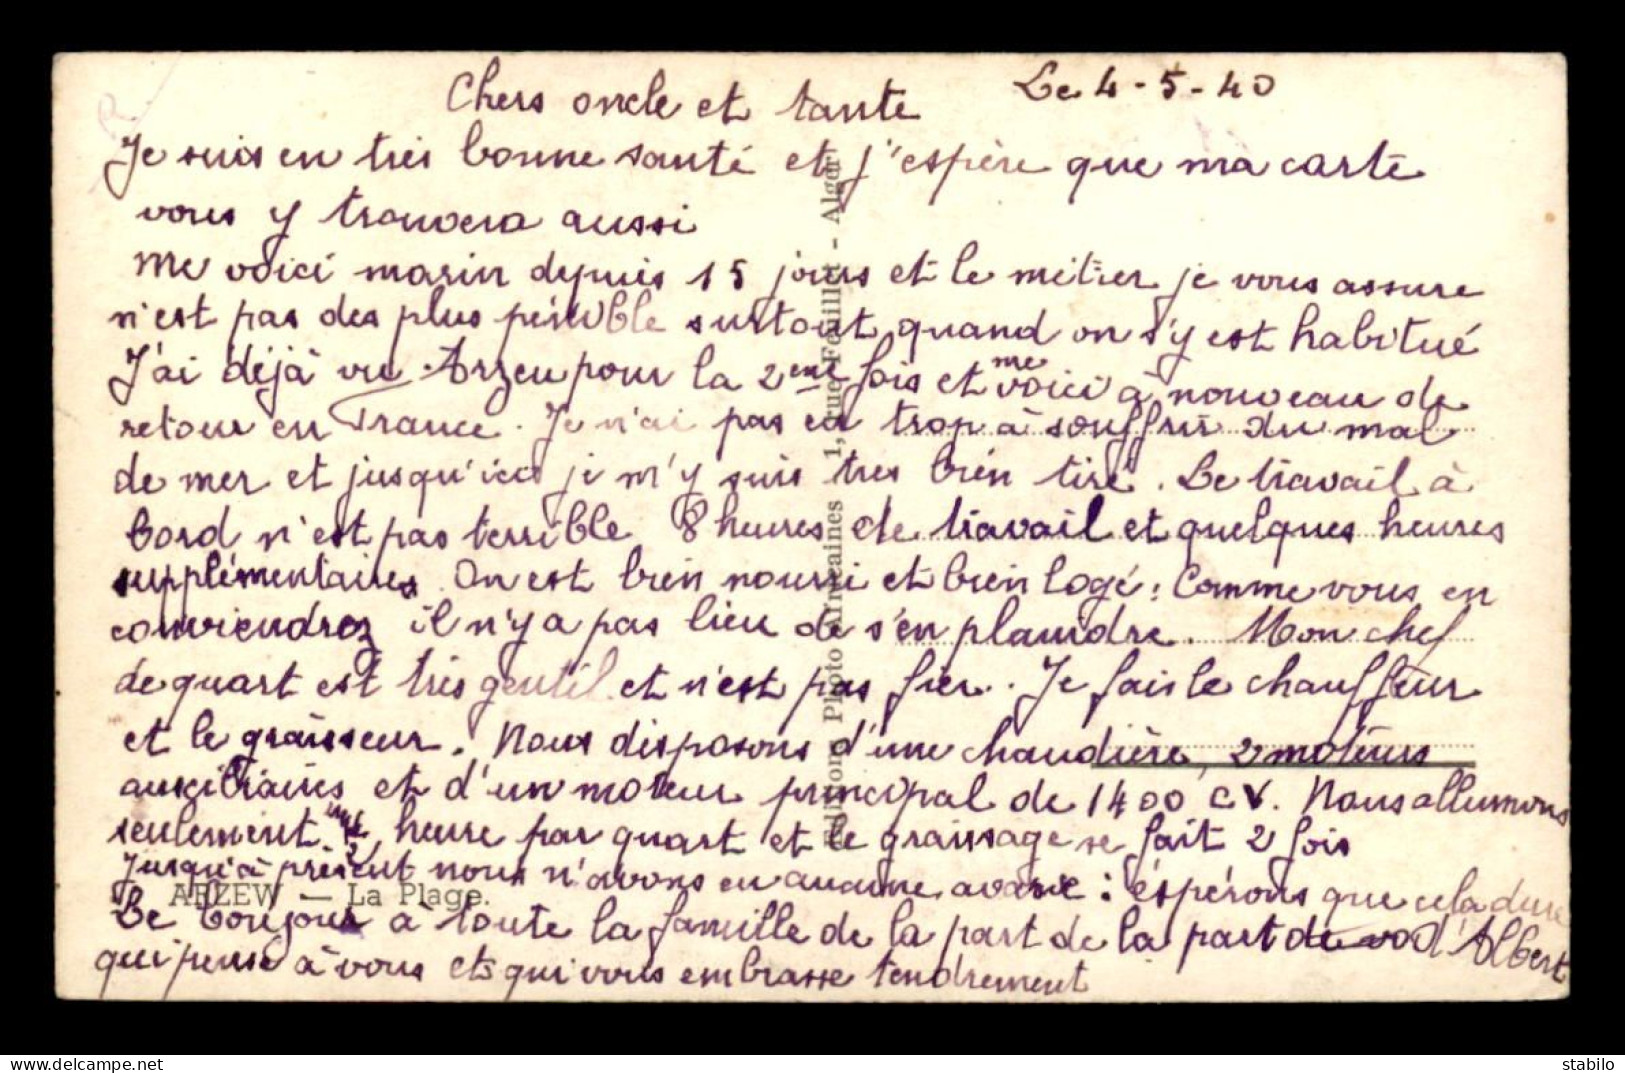 Le 4-5-40
Chers oncle et tante
Je suis en très bonne santé et j'espère que ma carte
vous y trouvera aussi
Me voici marin depuis 15 jours et le métier je vous assure
n'est pas des plus pénible surtout quand on s'y est habitué
J'ai déjà vu Arzeu pour la 2eme fois et me voici à nouveau de
retour en France. Je n'ai pas eu trop à souffrir du mal
de mer et jusqu'ici je m'y suis très bien tiré. Le travail à
bord n'est pas terrible 8 heures de travail et quelques heures
supplémentaires. On est bien nourri et bien logé : Comme vous en
conviendrez il n'y a pas lieu de s'en plaindre. Mon chef
de quart est très gentil et n'est pas fier. Je fais le chauffeur
et le graisseur. Nous disposons d'une chaudière, 2 moteurs
auxiliaires et d'un moteur principal de 1400 CV. Nous allumons
seulement une 1/2 heure par quart et le graissage se fait 2 fois
Jusqu'à présent nous n'avons eu aucune avarie : espérons que cela dure
Le bonjour à toute la famille de la part de la part de vo d'Albert
qui pense à vous et qui vous embrasse tendrement
ARZEW — La Plage.
Editions Photo Africaines 1, rue Feuillet - Alger
https://www.delcampe.net
stabilo